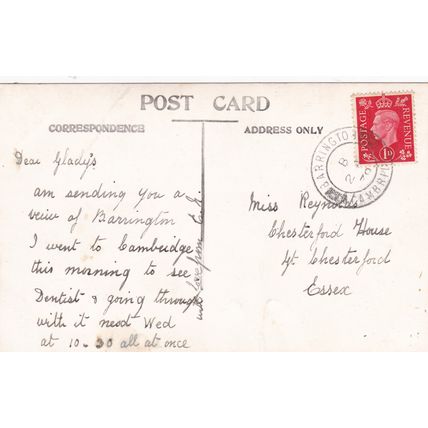 POST CARD
CORRESPONDENCE
ADDRESS ONLY
Dear Glady's
am sending you a
veiw of Barrington
I went to Cambridge
this morning to see
Dentist & going through
with it next Wed
at 10-30 all at once
with Love from
Miss Reynolds
Chesterford House
Gt. Chesterford
Essex
POSTAGE
REVENUE
1D
BARRINGTO
CAMBRI